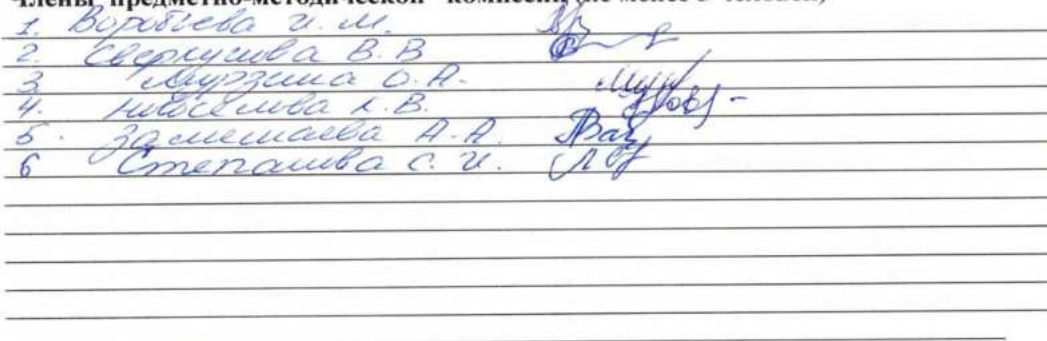 Члены предметно-методической комиссии (не менее 5 человек)
1. Воробьева И. М.
2. Сверкунова В. В
3 Мурзина О. А.
4. Новоселова К. В.
5. Замешаева А. А.
6 Степанова С. И.